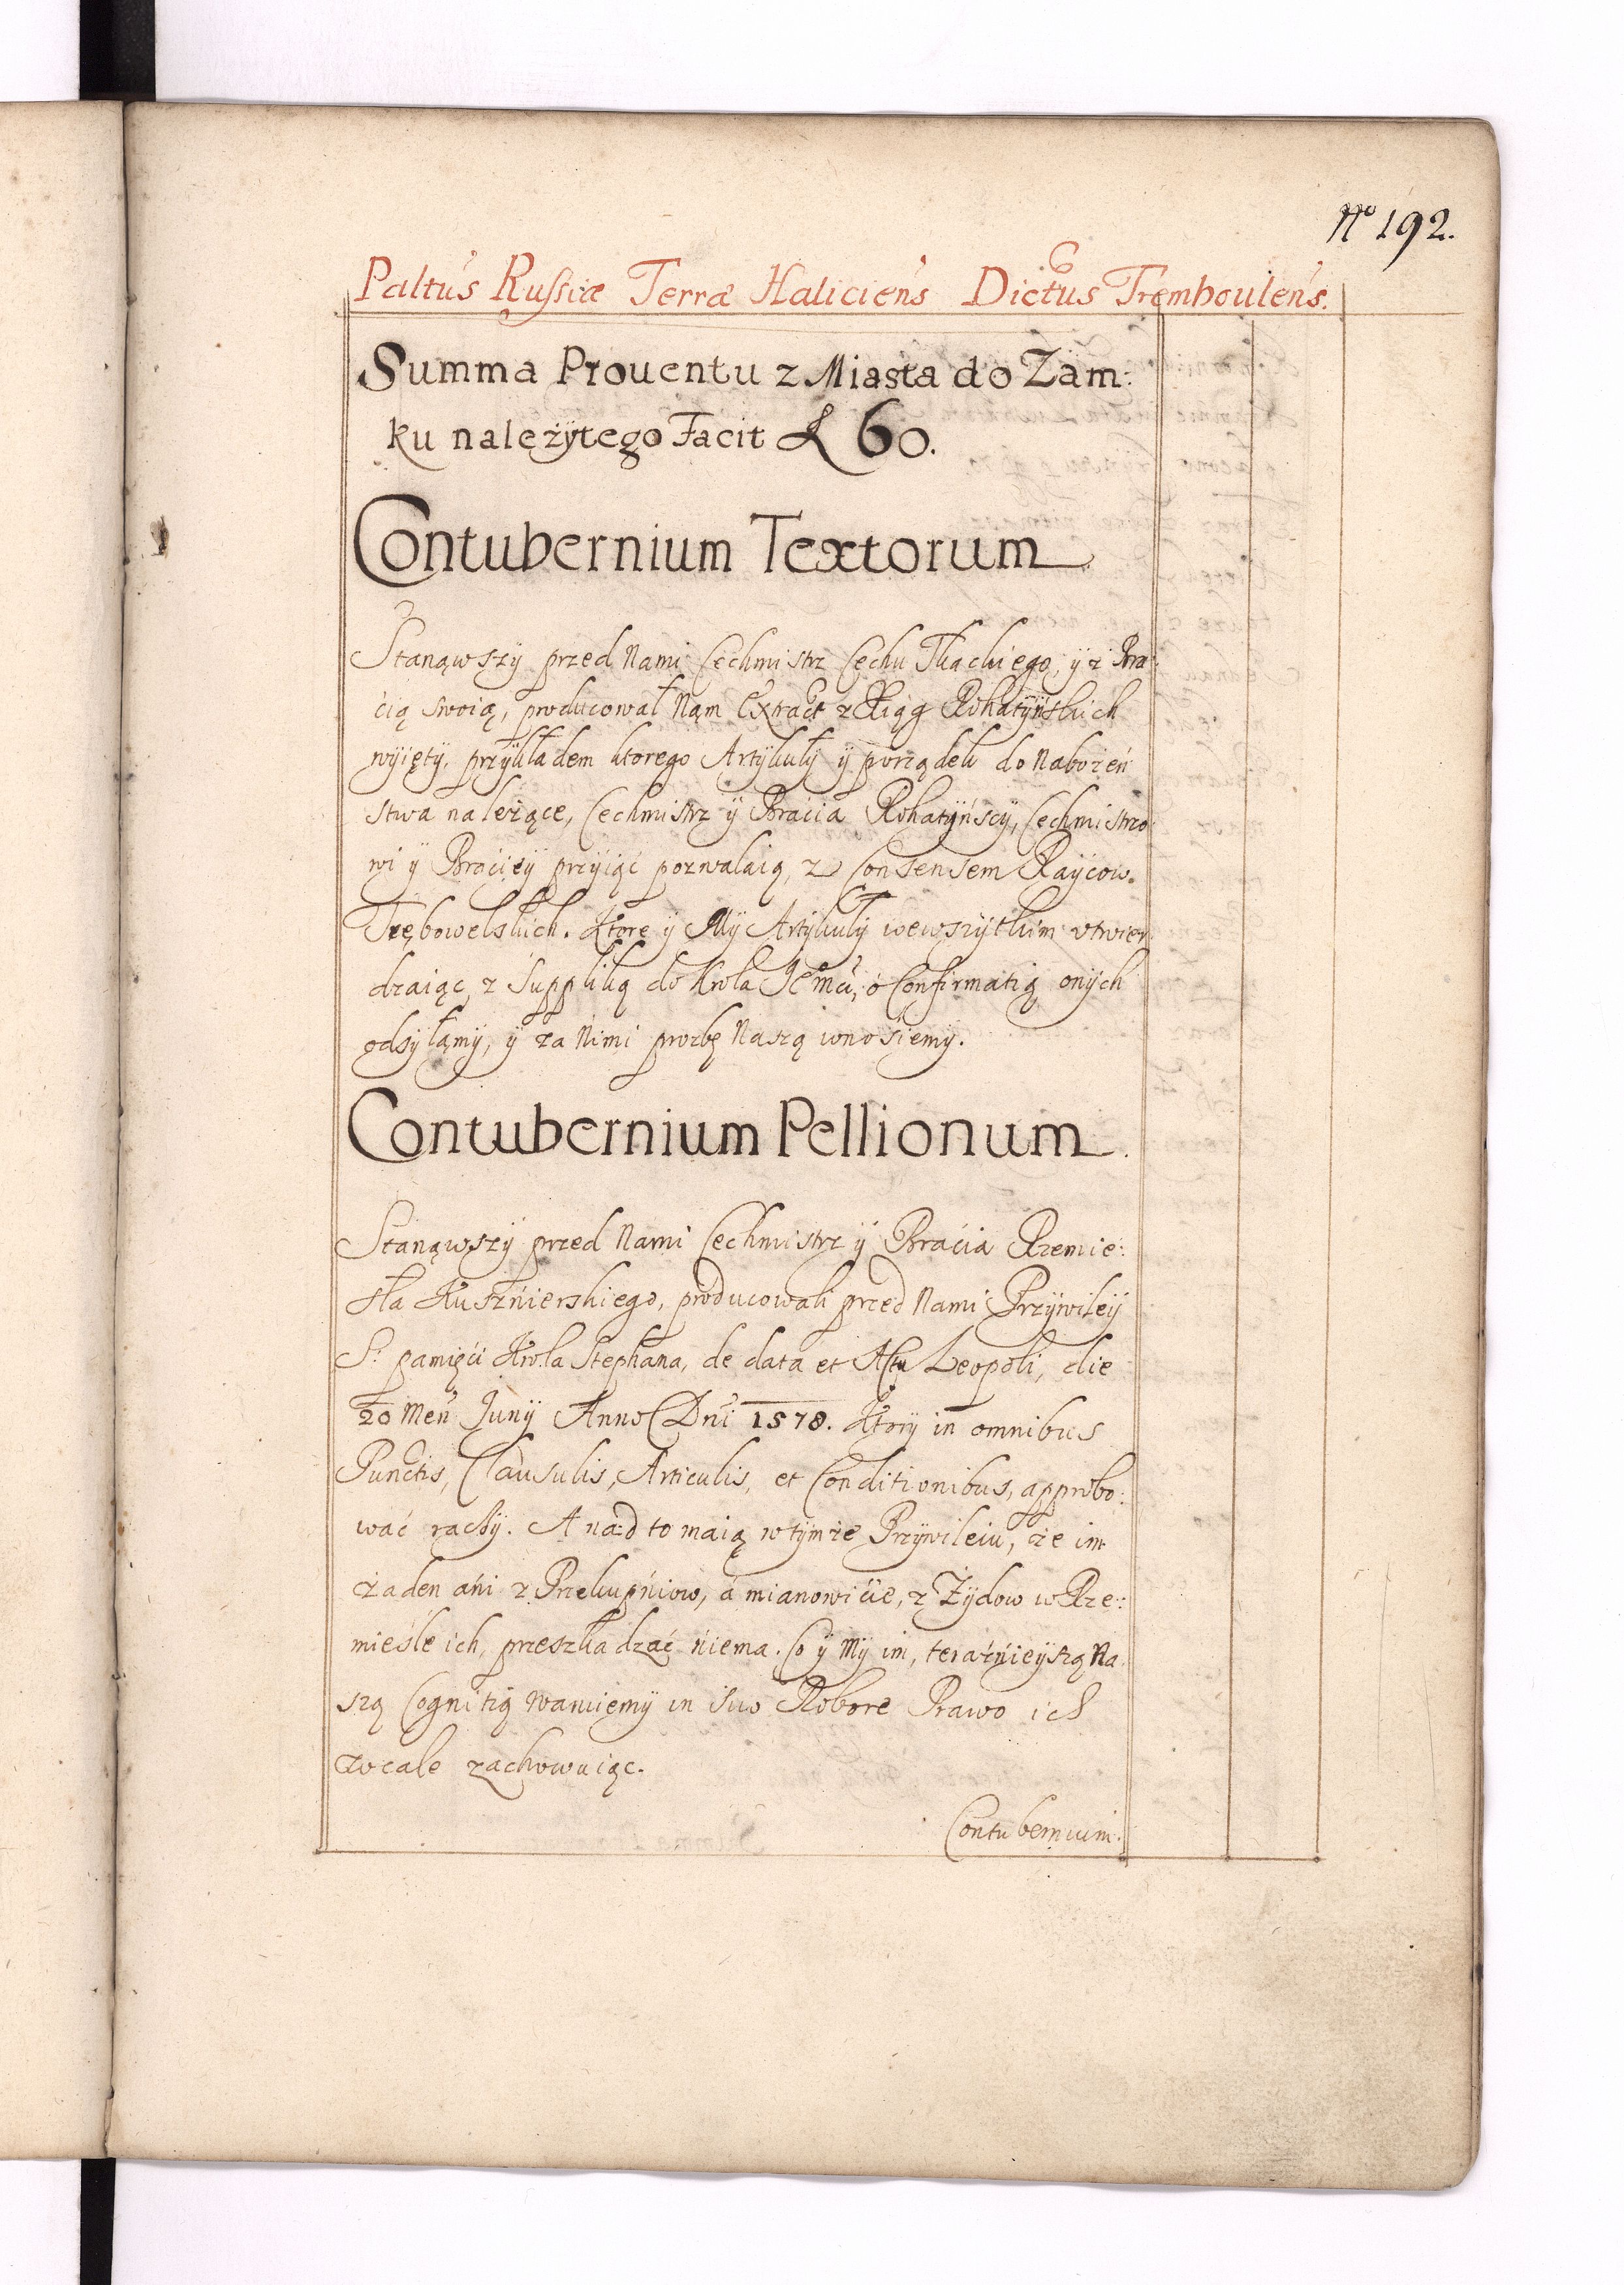 No 192.
Paltus Russiæ Terræ Haliciens Dictus Trembouleńs.
Summa Prouentu z Miasta do Zam:
ku należytego Facit 60.
Contubernium Textorum
Stanąwszÿ przed Nami Cechmistrz Cechu Tkackiego, ÿ z Bra:
cią swoią, producował Nąm Extract z Xiąg Rohatÿńskich
wyięty, przÿkładem ktorego Artÿkułÿ ÿ porządek do Nabożeń
stwa należące, Cechmistrz ÿ Bracia Rohatÿńscÿ, Cechmistrzo
wi ÿ Braciey przÿiąć pozwalaią, z Consensem Raÿcow.
Trębowelskich. Ktore ÿ Mÿ Artÿkułÿ wewszÿtkim vtwier
dzaiąc, z Suppliką do Krola Je mci, o Confirmatią onÿch
odsÿłamÿ, ÿ za Nimi prozbę Naszą wnosiemÿ.
Contubernium Pellionum
Stanąwszÿ przed Nami Cechmistrz ÿ Bracia Rzemie:
sła Kusznierskiego, producowali przed Nami Przÿwileÿ
S: pamięci Krola Stephana, de data et Actu Leopoli, die
20 Meń Junÿ Anno Dni 1578. Ktorÿ in omnibus
Punctis, Clausulis, Articulis, et Conditionibus, approbo:
wać raczÿ. A nad to maią wtÿmże Przÿwileiu, że im
żaden ani z Przekupniow, á mianowicie, z Żydow w Rze:
mieśle ich, przeszkadzać niema. Co ÿ Mÿ im, teraźnieÿszą Na
szą Cognitią waruiemÿ in suo Robore Prawo ich
wcale zachowuiąc.
Contubernium